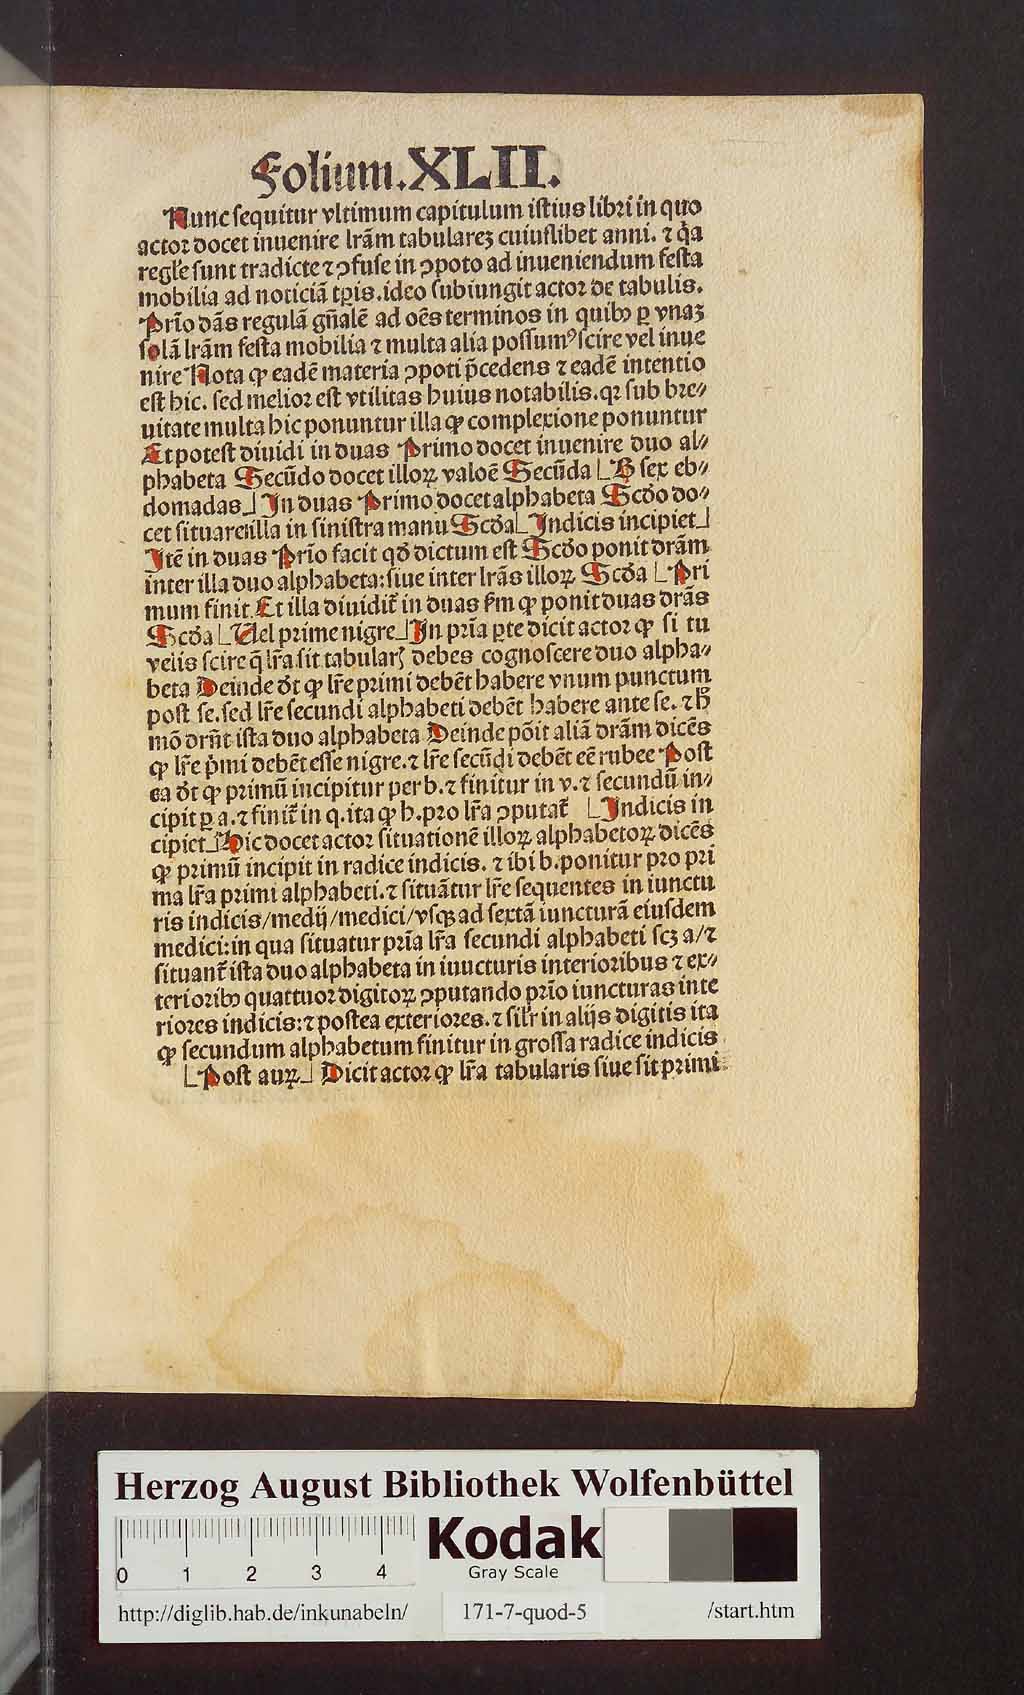 Folium.XLII.
Nunc sequitur vltimum capitulum istius libri in quo
actor docet inuenire lrãm tabulareꝫ cuiuslibet anni. ⁊ q̃a
regľe sunt tradicte ⁊ ↄfuse in ↄpoto ad inueniendum festa
mobilia ad noticiã tp̱is. ideo subiungit actor de tabulis.
Prĩo dãs regulã gñalẽ ad oẽs terminos in quibꝰ ꝑ vnaꝫ
solã lrãm festa mobilia ⁊ multa alia possumꝰ scire vel inue
nire Nota ꝙ eadẽ materia ↄpoti p̃cedens ⁊ eadẽ intentio
est hic. sed melior est vtilitas huius notabilis. qꝛ sub bre⸗
uitate multa hic ponuntur illa ꝙ complexione ponuntur
Et potest diuidi in duas Primo docet inuenire duo al⸗
phabeta Secũdo docet illoꝝ valoẽ Secũda ⌊B sex eb⸗
domadas⌋ In duas Primo docet alphabeta Scďo do⸗
cet situare illa in sinistra manu Scďa ⌊Indicis incipiet⌋
Itẽ in duas Prĩo facit qď dictum est Scďo ponit drãm
inter illa duo alphabeta: siue inter lrãs illoꝝ Scďa ⌊Pri
mum finit. Et illa diuidit᷑ in duas ṗm ꝙ ponit duas drãs
Scďa ⌊Uel prime nigre⌋ In prĩa ꝑte dicit actor ꝙ si tu
velis scire q̃ lr̃a sit tabularꝭ debes cognoscere duo alpha⸗
beta Deinde ďt ꝙ lr̃e primi debẽt habere vnum punctum
post se. sed lr̃e secundi alphabeti debẽt habere ante se. ⁊ ꝧ
mõ drñt ista duo alphabeta Deinde põit aliã drãm dicẽs
ꝙ lr̃e p̃mi debẽt esse nigre. ⁊ lr̃e secũdi debẽt eẽ rubee Post
ea ďt ꝙ primũ incipitur per b. ⁊ finitur in v. ⁊ secundũ in⸗
cipit ꝑ a. ⁊ finit᷑ in q. ita ꝙ h. pro lr̃a ↄputat᷑ ⌊Indicis in
cipiet⌋ Hic docet actor situationẽ illoꝝ alphabetoꝝ dicẽs
ꝙ primũ incipit in radice indicis. ⁊ ibi b. ponitur pro pri
ma lr̃a primi alphabeti. ⁊ situãtur lr̃e sequentes in iunctu
ris indicis/medij/medici/vsqꝫ ad sextã iuncturã eiusdem
medici: in qua situatur prĩa lr̃a secundi alphabeti scꝫ a/⁊
situant᷑ ista duo alphabeta in iuncturis interioribus ⁊ ex⸗
terioribꝰ quattuor digitoꝝ ↄputando prĩo iuncturas inte
riores indicis: ⁊ postea exteriores. ⁊ silr̃ in alijs digitis ita
ꝙ secundum alphabetum finitur in grossa radice indicis
⌊Post auꝝ⌋ Dicit actor ꝙ lr̃a tabularis siue sit primi
Herzog August Bibliothek Wolfenbüttel
0 1 2 3 4
Kodak
Gray Scale
http://diglib.hab.de/inkunabeln/ 171-7-quod-5 /start.htm